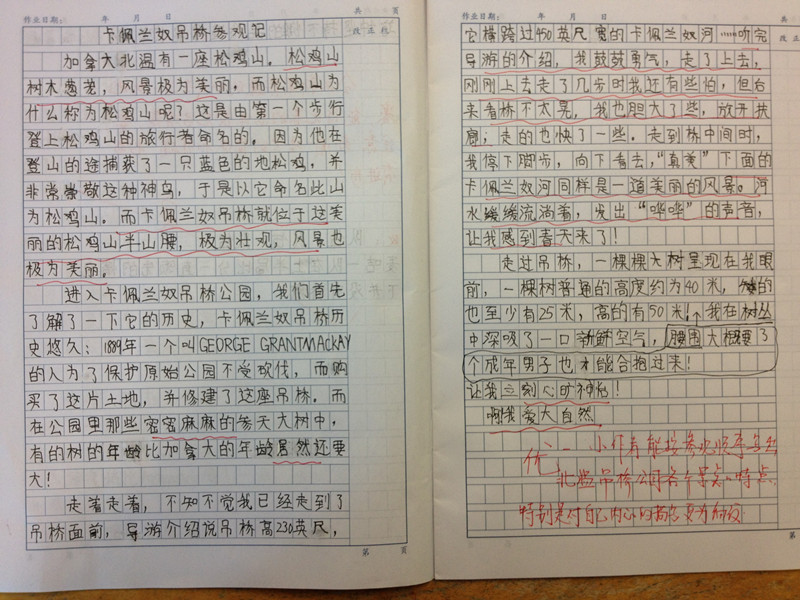 作业日期： 年 月 日 共 页
改正栏
卡佩兰奴吊桥参观记
加拿大北温有一座松鸡山。松鸡山
树木葱茏，风景极为美丽。而松鸡山为
什么称为松鸡山呢？这是由第一个步行
登上松鸡山的旅行者命名的。因为他在
登山的途捕获了一只蓝色的地松鸡，并
非常崇敬这种神鸟，于是以它命名此山
为松鸡山。而卡佩兰奴吊桥就位于这美
丽的松鸡山半山腰，极为壮观，风景也
极为美丽。
进入卡佩兰奴吊桥公园，我们首先
了解了一下它的历史，卡佩兰奴吊桥历
史悠久：1889年一个叫GEORGE GRANTMACKAY
的人为了保护原始公园不受砍伐，而购
买了这片土地，并修建了这座吊桥。而
在公园里那些密密麻麻的参天大树中，
有的树的年龄比加拿大的年龄居然还要
大！
走着走着，不知不觉我已经走到了
吊桥面前，导游介绍说吊桥高230英尺，
第 页
作业日期： 年 月 日 共
改正
它横跨过450英尺宽的卡佩兰奴河……听完
导游的介绍，我鼓鼓勇气，走了上去，
刚刚上去走了几步时我还有些怕，但后
来看桥不太晃，我也胆大了些，放开扶
，走的也快了一些。走到桥中间时，
我停下脚步，向下看去，“真美”下面的
卡佩兰奴河同样是一道美丽的风景。河
水缓缓流淌着，发出“哗哗”的声音，
让我感到春天来了！
走过吊桥，一棵棵大树呈现在我眼
前，一棵树普通的高度约为40米，矮的
也至少有25米，高的有50米！我在树丛
中深吸了一口新鲜空气，腰围大概要了
个成年男子也才能合抱过来！
让我立刻心旷神怡！
啊我爱大自然
优 小作者能按参观顺序写出
北温吊桥公园各个景点的特点，
特别是对自己内心的描写
第